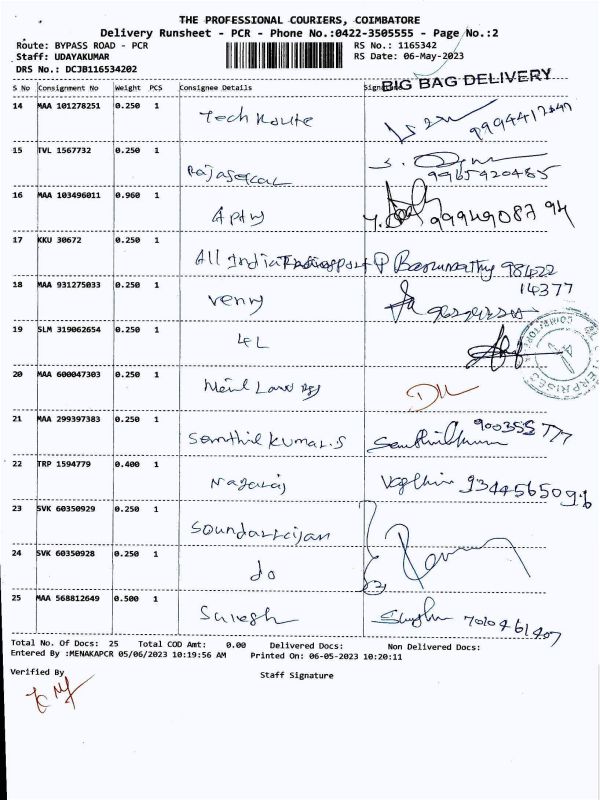 THE PROFESSIONAL COURIERS, COIMBATORE
Delivery Runsheet - PCR - Phone No.:0422-3505555 - Page No.:2
Route: BYPASS ROAD - PCR RS No.: 1165342
Staff: UDAYAKUMAR RS Date: 06-May-2023
DRS No.: DCJB116534202
BIG BAG DELIVERY
S No Consignment No Weight PCS Consignee Details
14 MAA 101278251 0.250 1 Tech Route
15 TVL 1567732 0.250 1 Rajasekar 9965920485
16 MAA 103496011 0.960 1
17 KKU 30672 0.250 1 All India 98422
18 MAA 931275033 0.250 1 14377
19 SLM 319062654 0.250 1
20 MAA 600047303 0.250 1
21 MAA 299397383 0.250 1 Senthil Kumar.S
22 TRP 1594779 0.400 1 Nagaraj
23 SVK 60350929 0.250 1 Soundarrajan
24 SVK 60350928 0.250 1 do
25 MAA 568812649 0.500 1 Suresh 7010461407
Total No. Of Docs: 25 Total COD Amt: 0.00 Delivered Docs: Non Delivered Docs:
Entered By :MENAKAPCR 05/06/2023 10:19:56 AM Printed On: 06-05-2023 10:20:11
Verified By Staff Signature